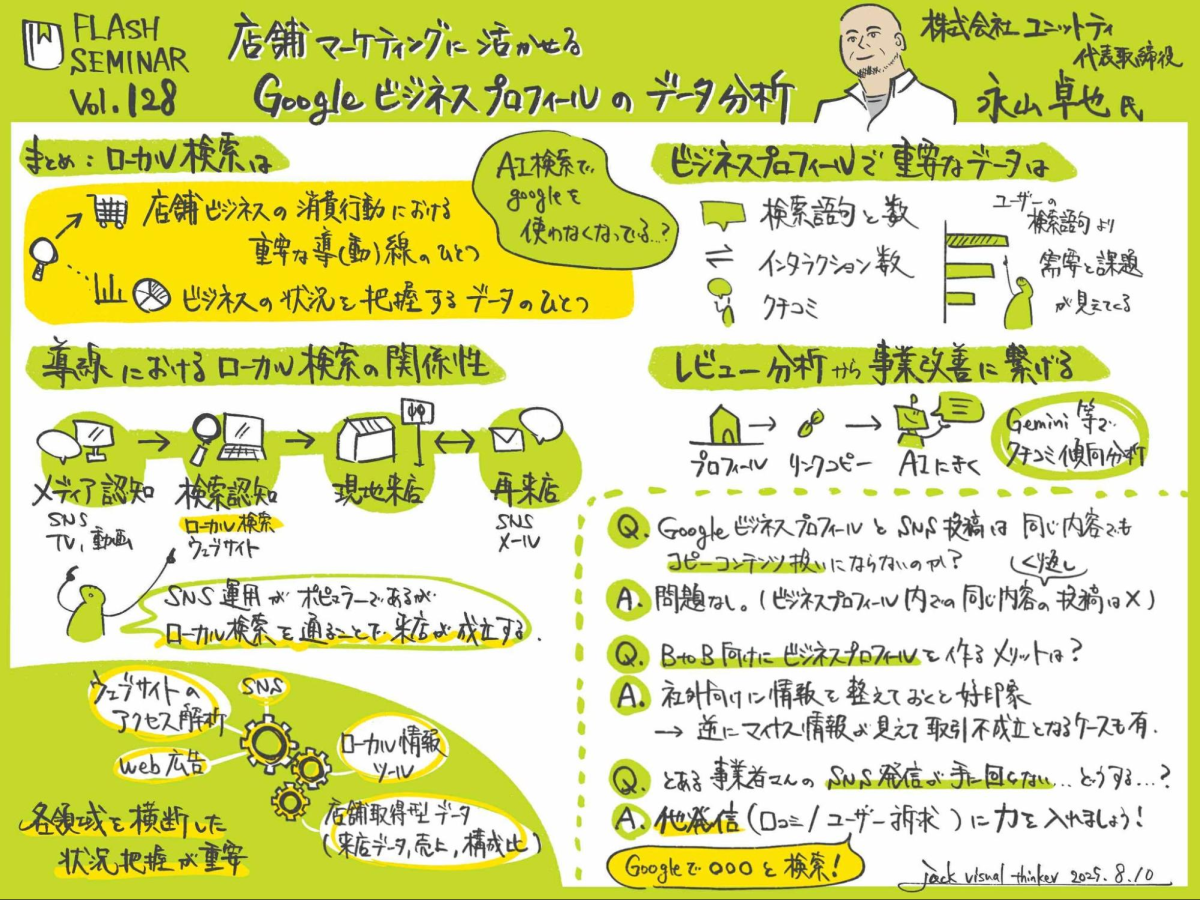 FLASH
SEMINAR
Vol.128
店舗マーケティングに活かせる
Googleビジネスプロフィールのデータ分析
株式会社ユニットティ
代表取締役
永山卓也氏
まとめ:ローカル検索は
店舗ビジネスの消費行動における
重要な導(動)線のひとつ
ビジネスの状況を把握するデータのひとつ
AI検索で、
googleを
使わなくなっている…?
ビジネスプロフィールで重要なデータは
検索語句と数
インタラクション数
クチコミ
ユーザーの
検索語句より
需要と課題
が見えてくる
導線におけるローカル検索の関係性
メディア認知
SNS
TV,動画
検索認知
ローカル検索
ウェブサイト
現地来店
再来店
SNS
メール
SNS運用がポピュラーであるが
ローカル検索を通ることで来店が成立する.
レビュー分析から事業改善に繋げる
プロフィール
リンクコピー
AIにきく
Gemini等で
クチコミ傾向分析
ウェブサイトの
アクセス解析
SNS
web広告
ローカル情報
ツール
店舗取得型データ
(来店データ,売上,構成比)
各領域を横断した
状況把握が重要
Q. GoogleビジネスプロフィールとSNS投稿は同じ内容でも
コピーコンテンツ扱いにならないのか?
くり返し
A. 問題なし。(ビジネスプロフィール内での同じ内容の投稿は×)
Q. BtoB向けにビジネスプロフィールを作るメリットは?
A. 社外向けに情報を整えておくと好印象
→ 逆にマイナス情報が見えて取引不成立となるケースも有.
Q. とある事業者さんのSNS発信が手に回らない…どうする…?
A. 他発信(口コミ/ユーザー訴求)に力を入れましょう!
Googleで○○○と検索!
jack visual thinker 2025.8.10